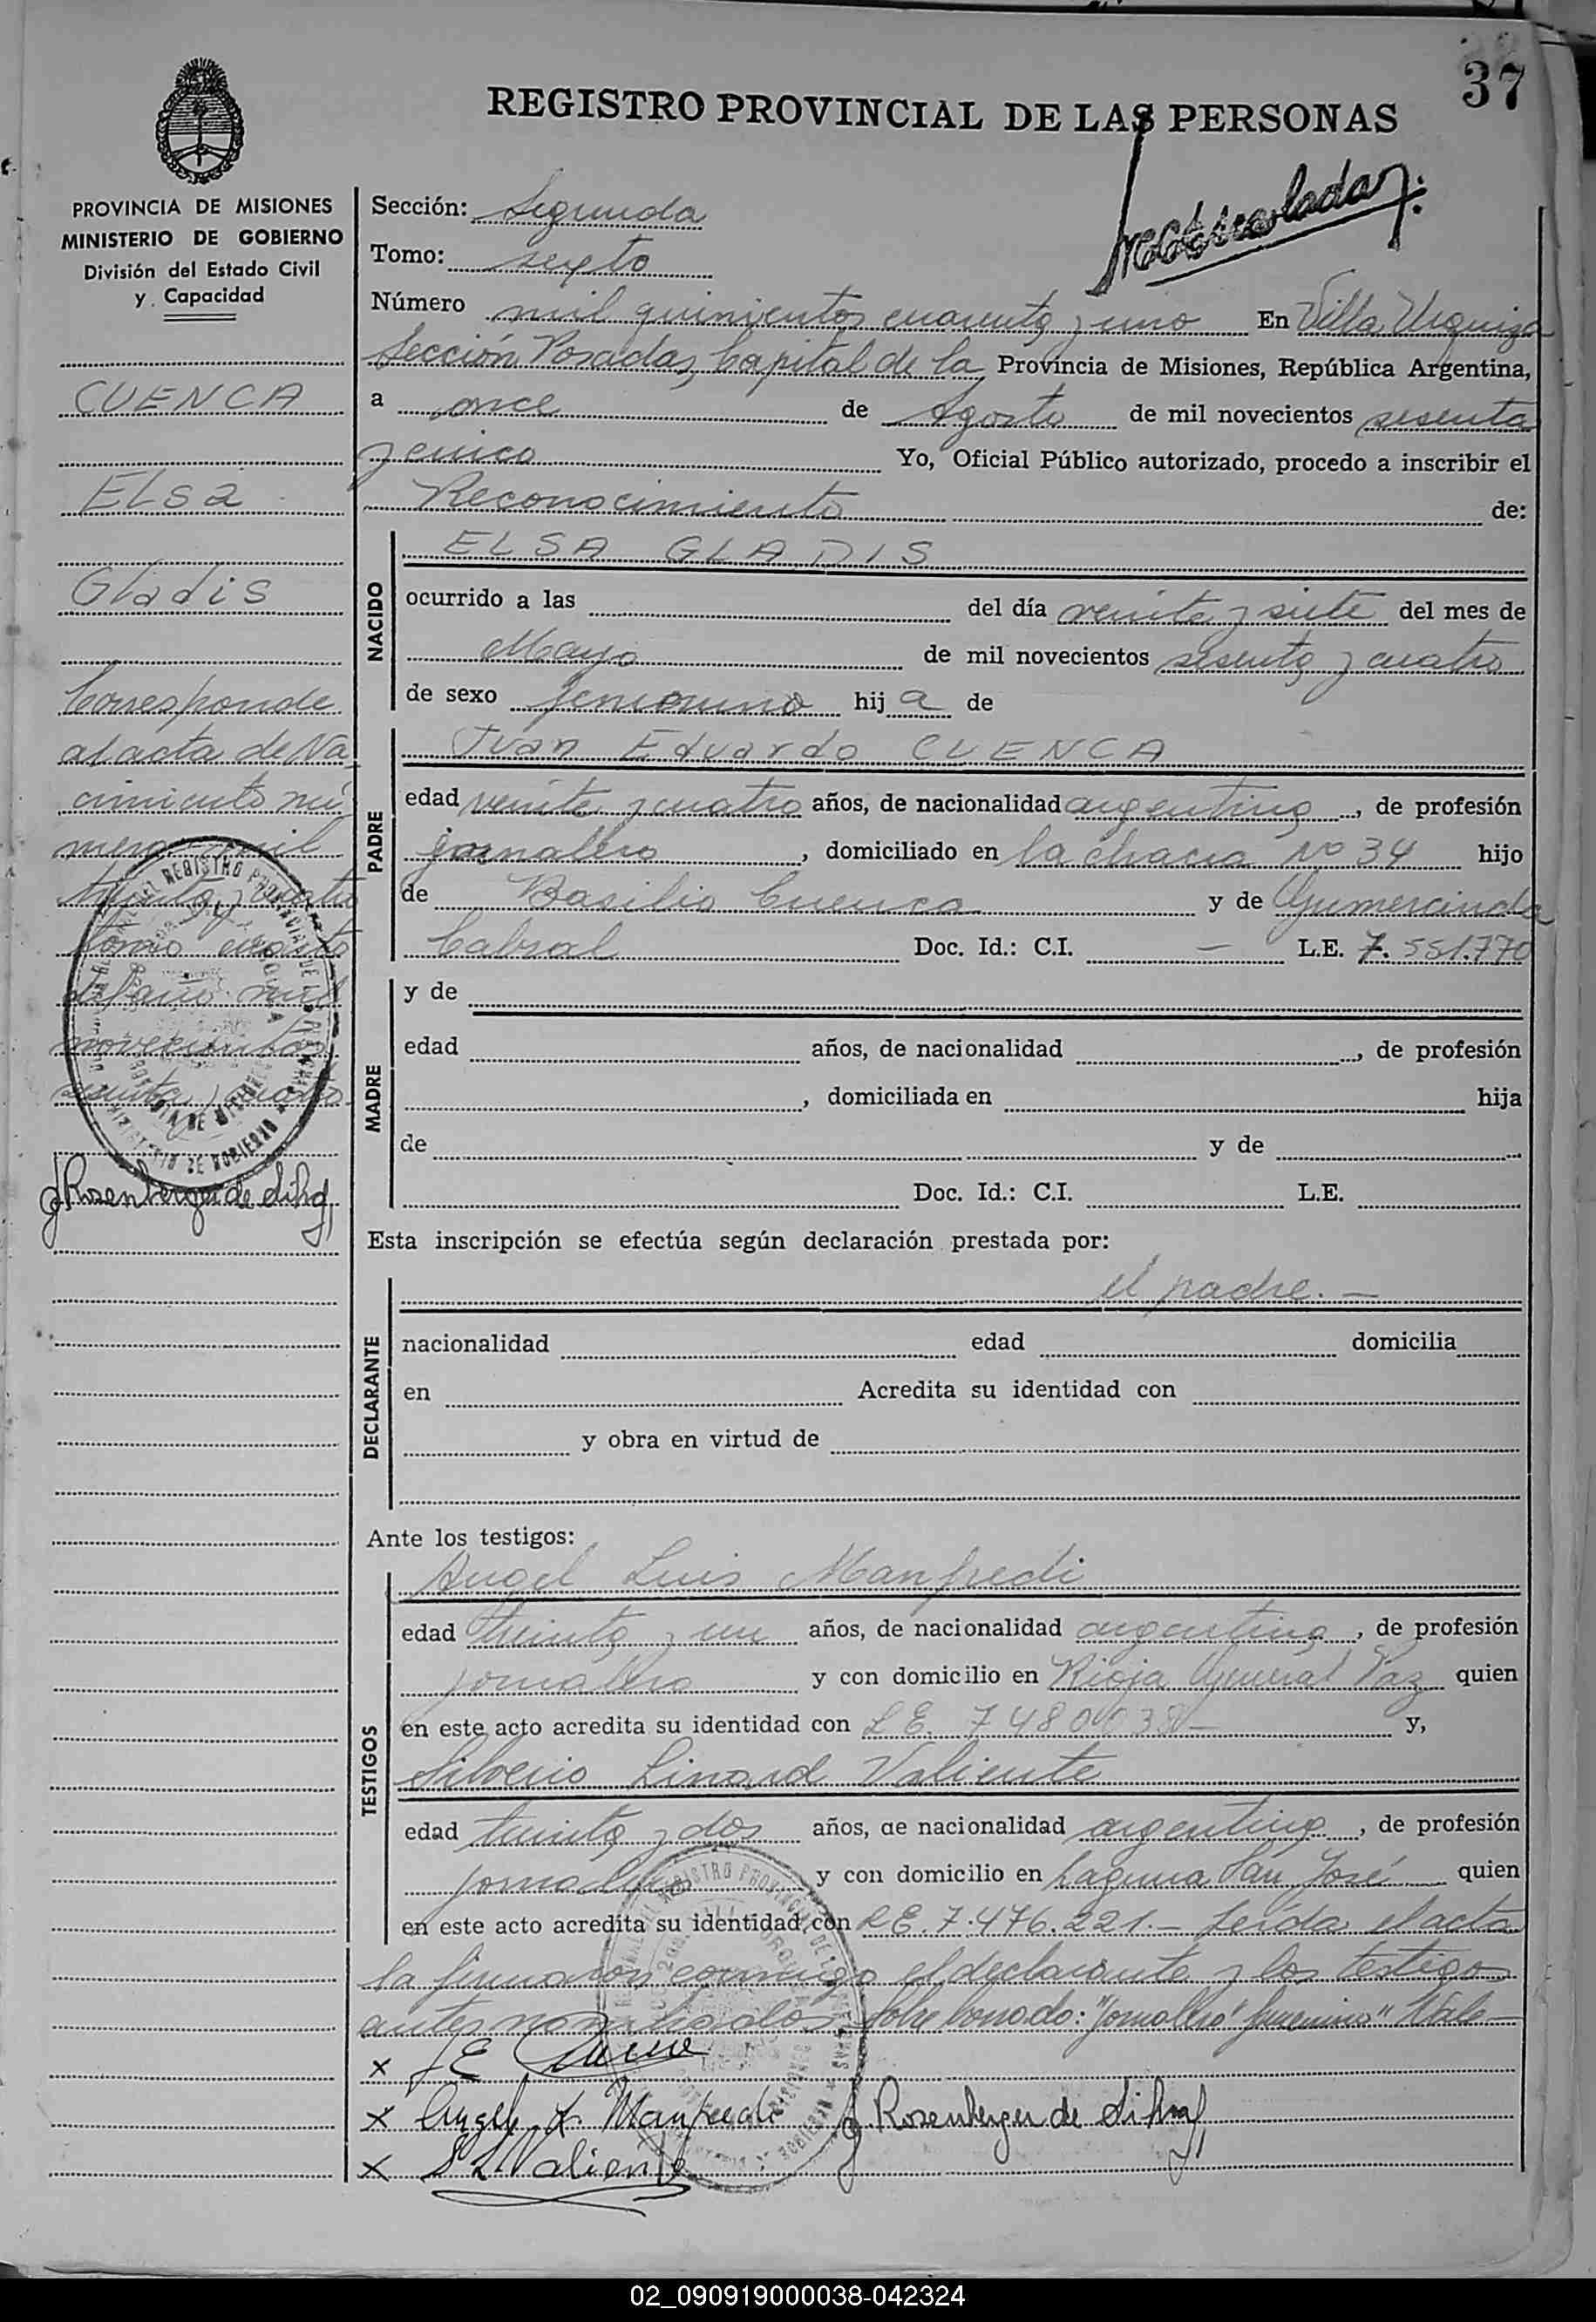 37
REGISTRO PROVINCIAL DE LAS PERSONAS
PROVINCIA DE MISIONES
MINISTERIO DE GOBIERNO
División del Estado Civil
y Capacidad
CUENCA
Elsa
Gladis
Corresponde
al acta de Na
cimiento nú
mero mil
treinta y cuatro
tomo cuarto
del año mil
novecientos
sesenta y cuatro
J Rosenberger de
Sección: Segunda
Tomo: sexto
Número mil quinientos cuarenta y uno En Villa Urquiza
Sección Posadas, Capital de la Provincia de Misiones, República Argentina,
a once de Agosto de mil novecientos sesenta
y cinco Yo, Oficial Público autorizado, procedo a inscribir el
Reconocimiento de:
NACIDO
ELSA GLADIS
ocurrido a las del día veinte y siete del mes de
Mayo de mil novecientos sesenta y cuatro
de sexo femenino hij a de
PADRE
Juan Eduardo CUENCA
edad veinte y cuatro años, de nacionalidad argentina, de profesión
jornalero, domiciliado en la chacra No 34 hijo
de Basilio Cuenca y de Gumercinda
Cabral Doc. Id.: C.I. — L.E. 7.551.770
MADRE
y de
edad años, de nacionalidad , de profesión
, domiciliada en hija
de y de
Doc. Id.: C.I. L.E.
Esta inscripción se efectúa según declaración prestada por:
DECLARANTE
el padre.—
nacionalidad edad domicilia
en Acredita su identidad con
y obra en virtud de
Ante los testigos:
TESTIGOS
Angel Luis Manfredi
edad treinta y un años, de nacionalidad argentina, de profesión
jornalero y con domicilio en Rioja General Paz quien
en este acto acredita su identidad con L.E. y,
Silverio Linard Valiente
edad treinta y dos años, de nacionalidad argentina, de profesión
jornalero y con domicilio en Laguna San José quien
en este acto acredita su identidad con L.E. 7.476.221.— Leída el acta
la firmaron conmigo el declarante y los testigos
antes nombrados Sobre borrado: "jornalero" femenino" Vale—
x J E Cuenca
x Angel L. Manfredi J Rosenberger de
x S L Valiente
02_090919000038-042324